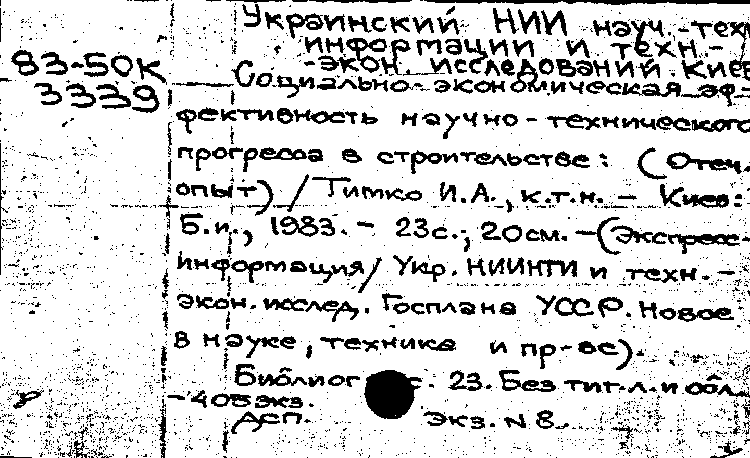 Украинский НИИ науч.-техн
информации и техн.-
83-50К
-экон. исследований. Киев
3339
Социально-экономическая эф-
фективность научно-технического
прогресса в строительстве: (Отеч.
опыт) / Тимко И.А., к.т.н. - Киев:
Б.и., 1983. - 23с.; 20см. - (Экспресс-
информация/ Укр. НИИНТИ и техн.-
экон. исслед. Госплана УССР. Новое
в науке, технике и пр-ве).
Библиог с. 23. Без тит.л. и обл.
-405экз.
Экз. N 8